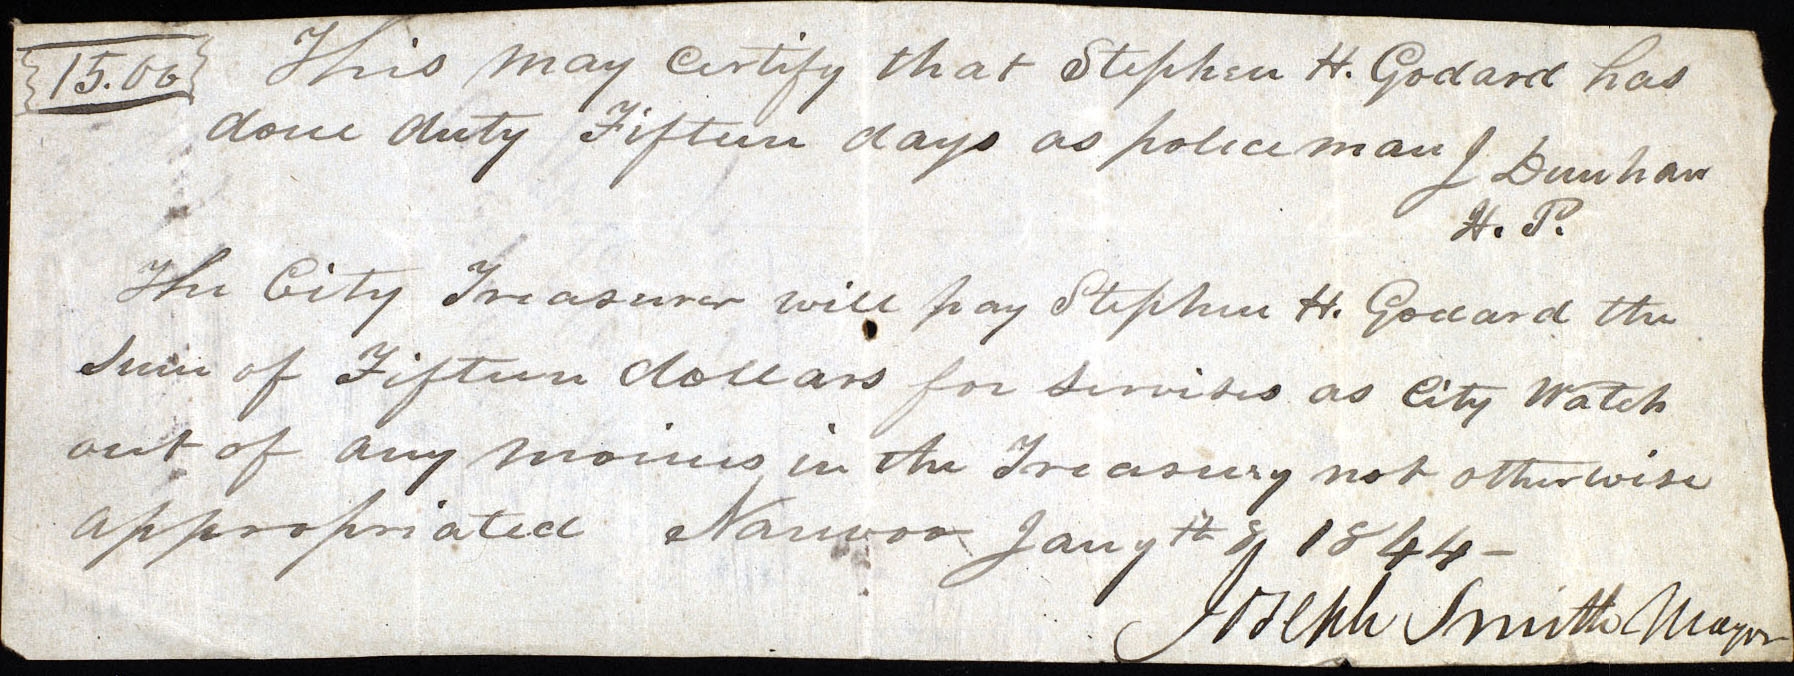 15.00 This may certify that Stephen H. Godard has
done duty Fifteen days as police man J Dunham
H. P.
The City Treasurer will pay Stephen H. Godard the
Sum of Fifteen dollars for servises as City Watch
out of any moines in the Treasury not otherwise
appropriated Nauvoo Jany th 8 1844-
Joseph Smith Mayor